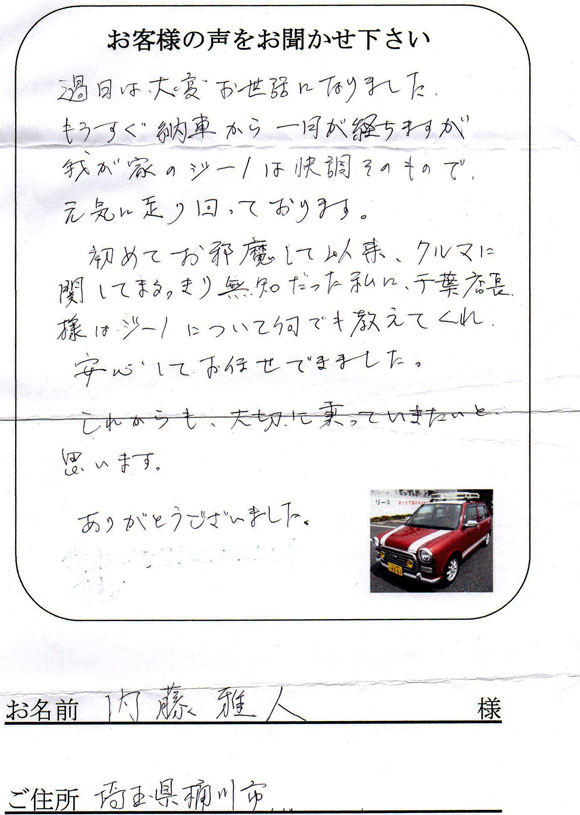 お客様の声をお聞かせ下さい
過日は大変お世話になりました.
もうすぐ納車から一ヶ月が経ちますが
我が家のジーノは快調そのもので,
元気に走り回っております。
初めてお邪魔して以来、クルマに
関してまるっきり無知だった私に、千葉店長
様はジーノについて何でも教えてくれ.
安心してお任せできました。
これからも、大切に乗っていきたいと
思います。
ありがとうございました。
リース
お名前 内藤雅人 様
ご住所 埼玉県桶川市